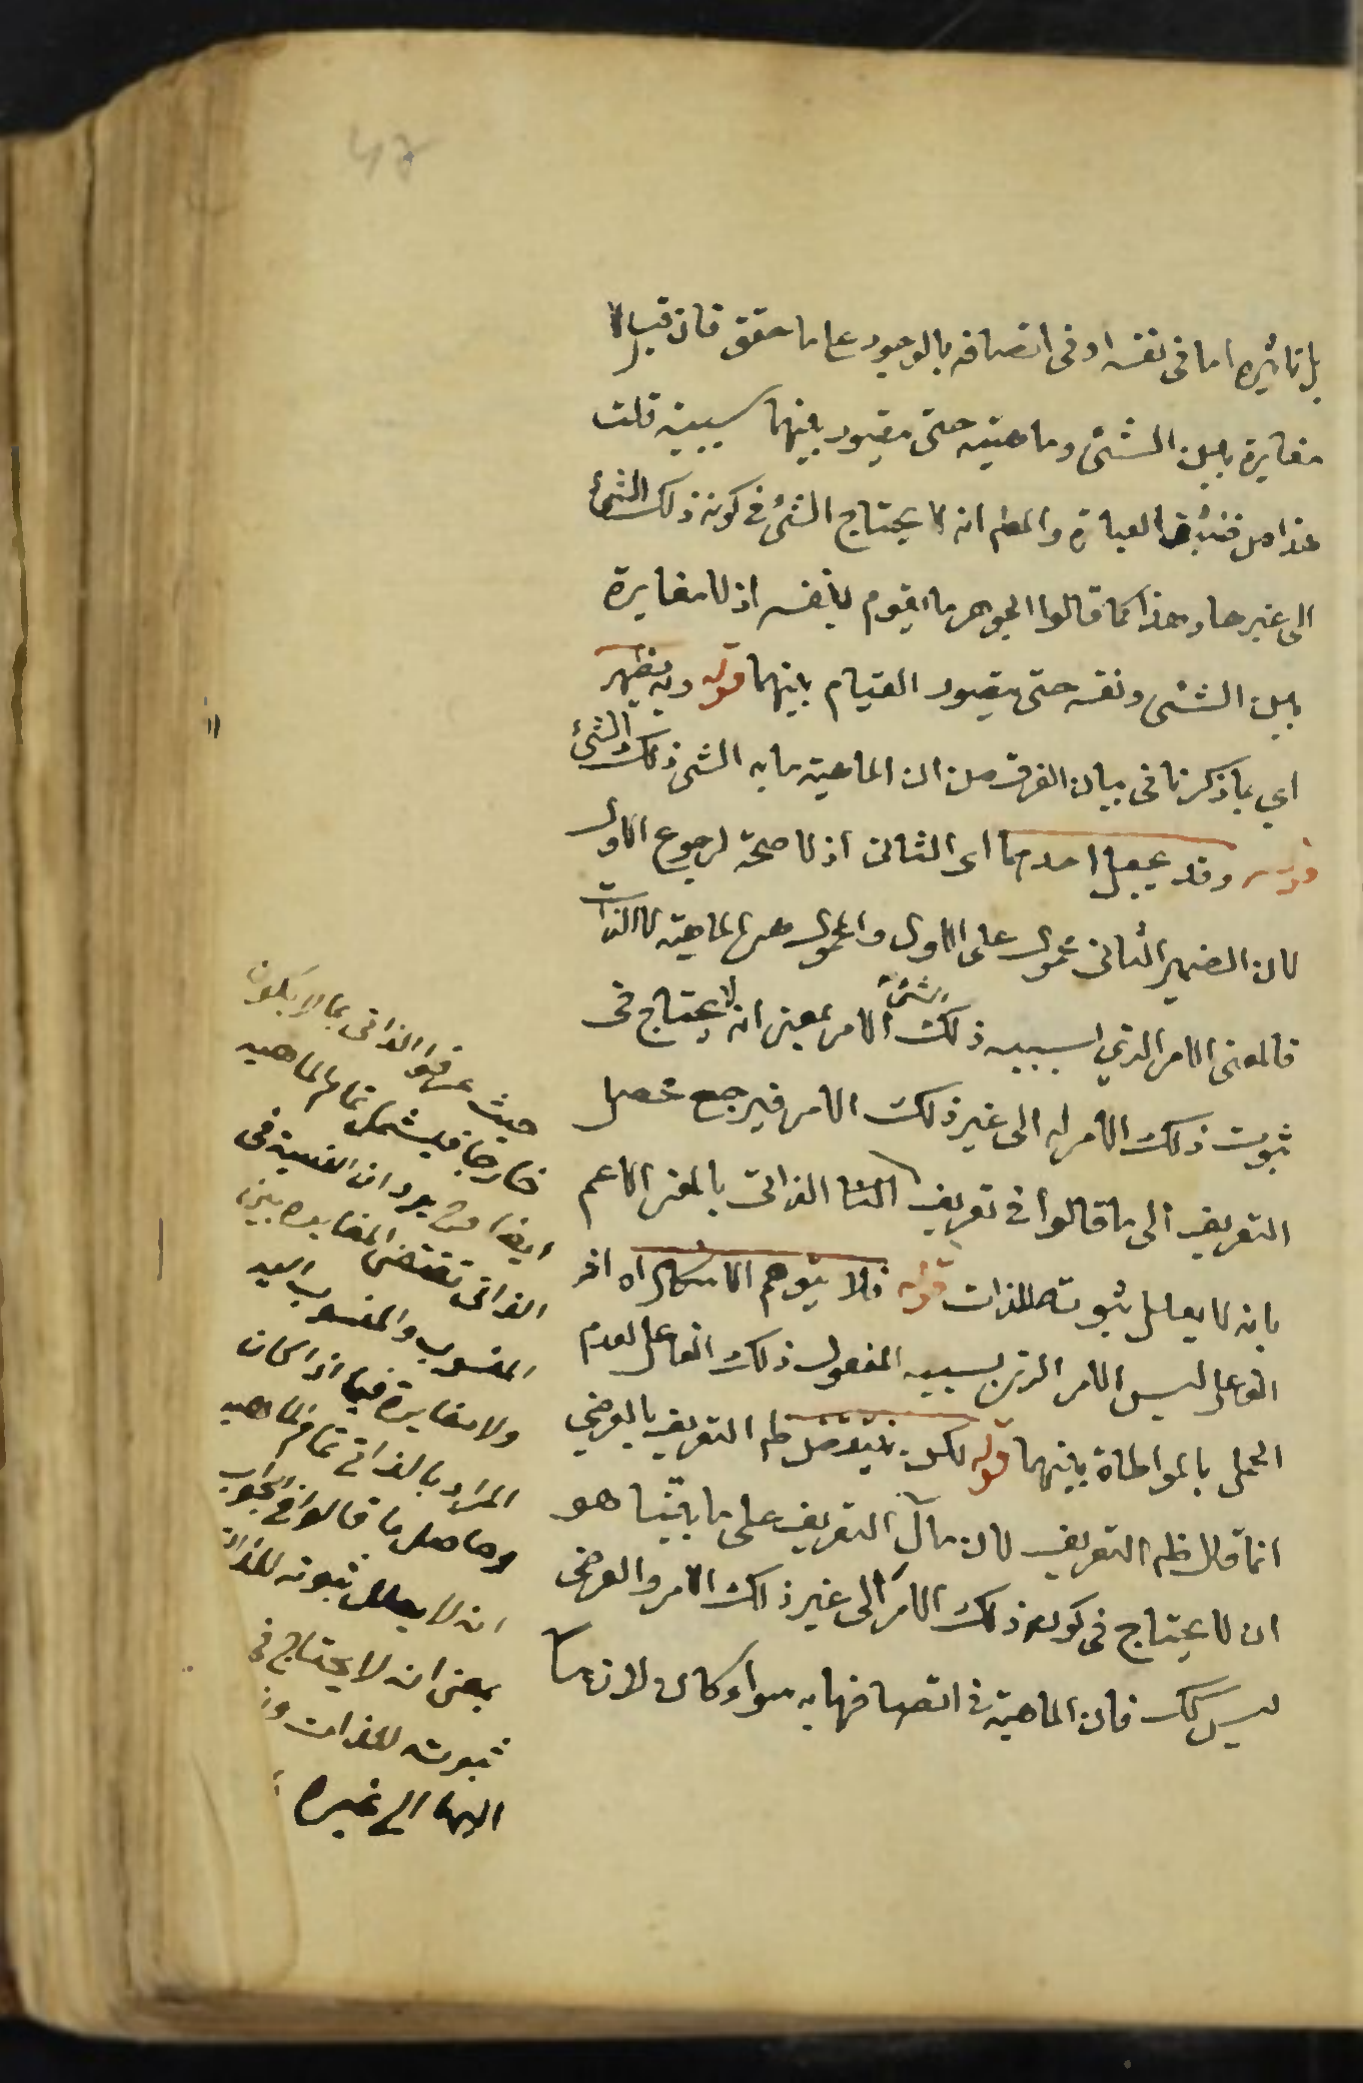 بل تاثيره اما فى نفسه او فى اتصافه بالوجود على ما حقق فان قيل لا
مغايرة بين الشئ وماهيته حتى يتصور بينهما سببية قلت
هذا من ضيق العبارة والمط انه لا يحتاج الشئ فى كونه ذلك الشئ
الى غيرها وهذا كما قالوا الجوهر ما يقوم بنفسه اذ لا مغايرة
بين الشئ ونفسه حتى يتصور القيام بينهما قوله وبه يظهر
اي بما ذكرنا فى بيان الفرق من ان الماهية ما به الشئ ذلك الشئ
قوله وقد يجعل احدهما اى الثانى اذ لا صحة لرجوع الاول
لان الضمير الثانى محمول على الاول والمحمول هى الماهية لا الذات
فالمعنى الامر الذي بسببه ذلك الشئ الامر بمعنى انه لا يحتاج فى
ثبوت ذلك الامر له الى غير ذلك الامر فيرجع محصل
التعريف الى ما قالوا فى تعريف الذاتى بالمعنى الاعم
بانه لا يعلل ثبوته للذات قوله فلا يتوهم الاشكال اه اذ
الفاعل ليس الامر الذى بسببه المفعول ذلك الفاعل لعدم
الحمل بالمواطاة بينهما قوله لكن ينتقض ظ التعريف بالعرضي
انما قال ظ التعريف لان مآل التعريف على ما بينا هو
ان لا يحتاج فى كونه ذلك الامر الى غير ذلك الامر والعرضى
ليس كك فان الماهية فى اتصافها به سواء كان لازما
حيث عرفوا الذاتى بما لا يكون
خارجا فيشمل تمام الماهيه
ايضا يرد ان النسبة فى
الذاتى تقتضى المغايره بين
المنسوب والمنسوب اليه
ولا مغايرة فيما اذا كان
المراد بالذاتى تمام الماهيه
وحاصل ما قالوا فى الجواب
انه لا يعلل ثبوته للذات
بمعنى انه لا يحتاج فى
ثبوته للذات
اليها الى غيره